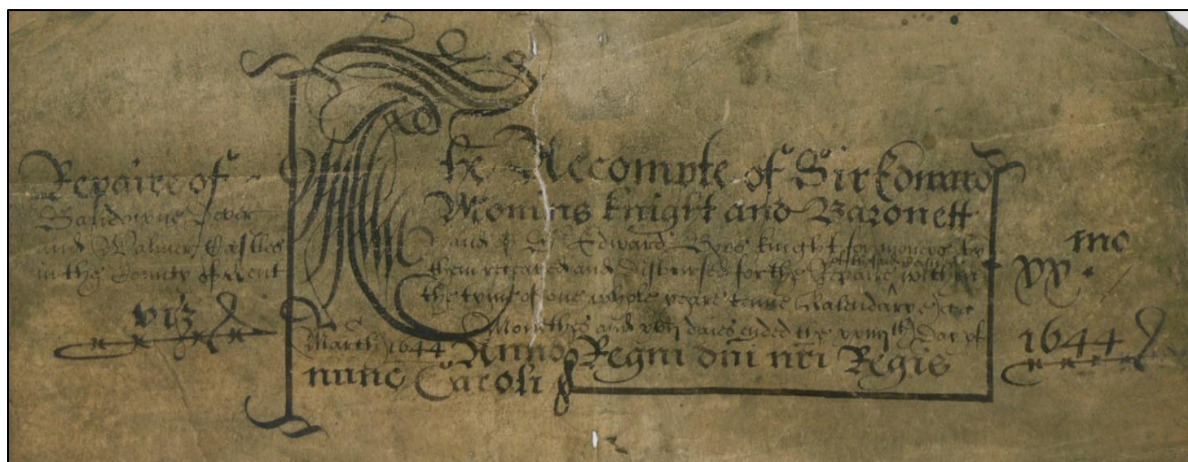 Repaire of
Sandowne Dover
and Walmer Castles
in the County of Kent
viz
The Accompte of Sir Edward
Monins knight and Baronett
and Sr Edward Boys knight for moneys by
them receaved and disbursed for the Repaire within
of the said Castles
the tyme of one whole yeare tenne Kalendary
Monethes and xvij daies ended the xxiiijth Day of
March 1644 Anno Regni dni nri Regis
nunc Caroli
xxmo
1644